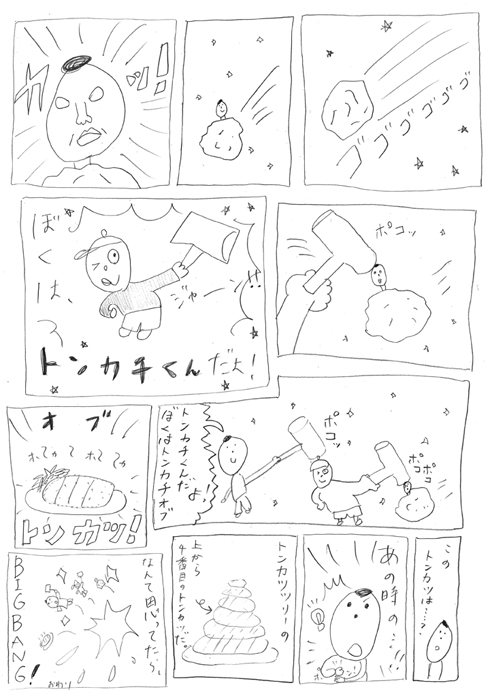 ゴゴゴゴゴゴ
カッ!
ポコッ
ぼくは、
トンカチくんだよ!
ジャーン
!!
ポコッ
ポコ
ポコッ
トンカチくんだよ、
ぼくはトンカチオブ
オブ
ホってゃ ホってゃ
トンカツ!
この
トンカツは……?
あの時の…
トンカツツリーの
上から
4番目のトンカツだ。
なんて思ってたら、
BIG BANG!
おわり